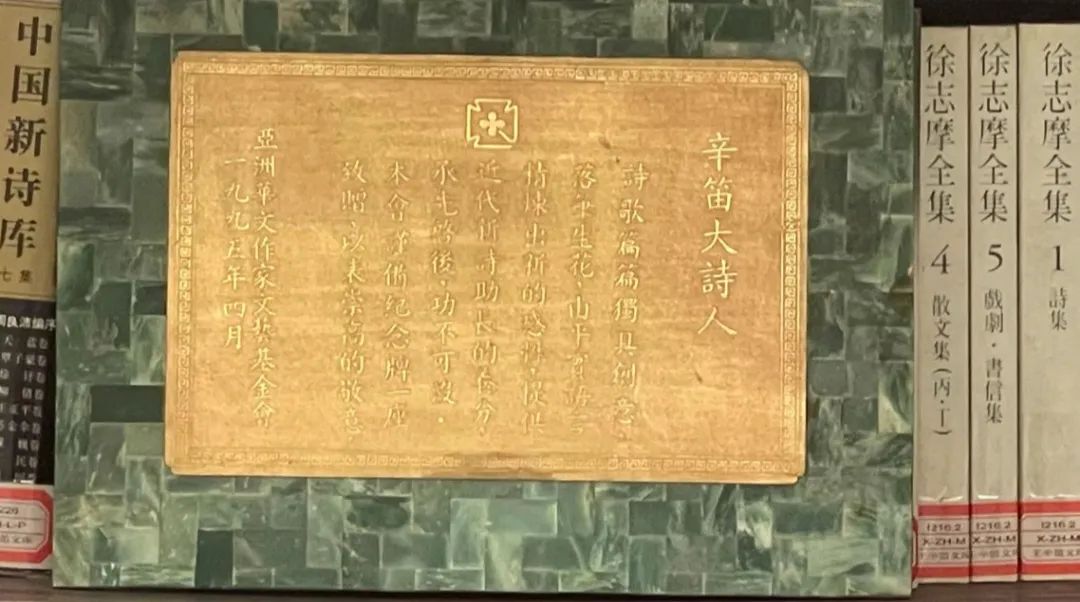 中国新诗库
七集
周良沛编序
辛笛大詩人
詩歌篇篇獨具創意,
落筆生花,由平實語言
煉出新的感性,提供
近代新詩助長的養分
承先啓後,功不可沒。
本會謹備紀念牌一座
致贈,以表崇高的敬意
亞洲華文作家文藝基金會
一九九五年四月
徐志摩全集 4 散文集(丙·丁)
I216.2
X-ZH-M
徐志摩全集 5 戲劇·書信集
I216.2
X-ZH-M
徐志摩全集 1 詩集
I216.2
X-ZH-M